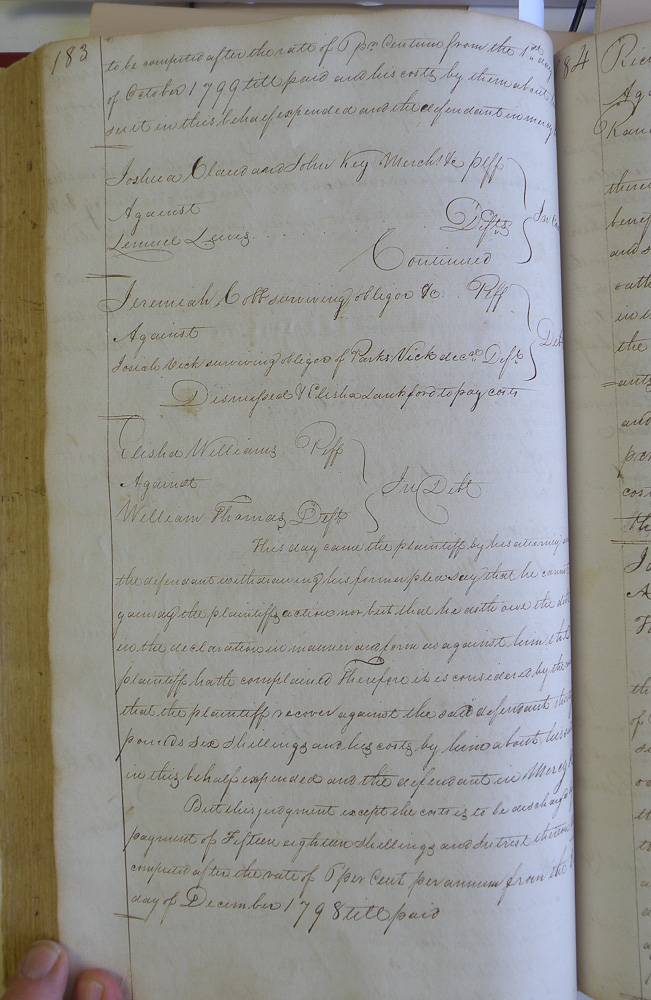 183
to be computed after the rate of 6 pr. Centum from the 1st day
of October 1799 till paid and his costs by them about
suit in this behalf expended and the defendant in mercy
Joshua Claud and John Key Merchts &c plff
Against
Lemuel Lewis Defts
In
Continued
Jeremiah Cobb surviving obligor &c. Plff
Against
Debt
Josiah Vick surviving obligor of Parks Vick decd. Deft
Dismissed & Elisha Lankford to pay costs
Elisha Williams Plff
Against
In Debt
William Thomas Deft
This day came the plaintiff by his attorney
the defendant withdrawing his former plea say that he cannot
gainsay the plaintiffs action nor but that he doth owe the debt
in the declaration in manner and form as against him the
plaintiff hath complained Therefore it is considered by the
that the plaintiff recover against the said defendant
pounds six shillings and his costs by him about his
in this behalf expended and the defendant in Mercy &
But this judgment except the costs is to be discharged
payment of Fifteen eighteen shillings and Intrest thereon
computed after the rate of 6 per Cent per annum from the
day of December 1798 till paid
184
Ag
the